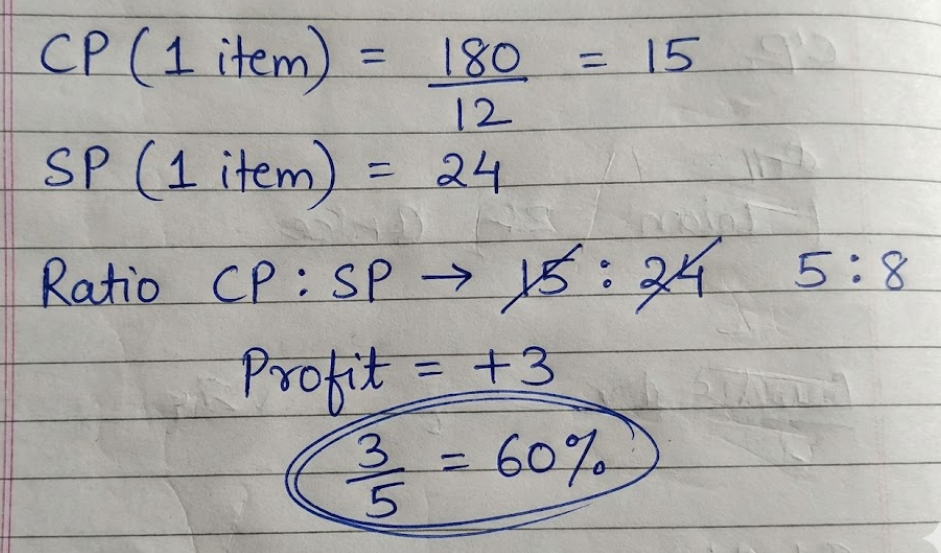 CP (1 item) = 180/12 = 15
SP (1 item) = 24
Ratio CP : SP → 15 : 24 5 : 8
Profit = +3
3/5 = 60%